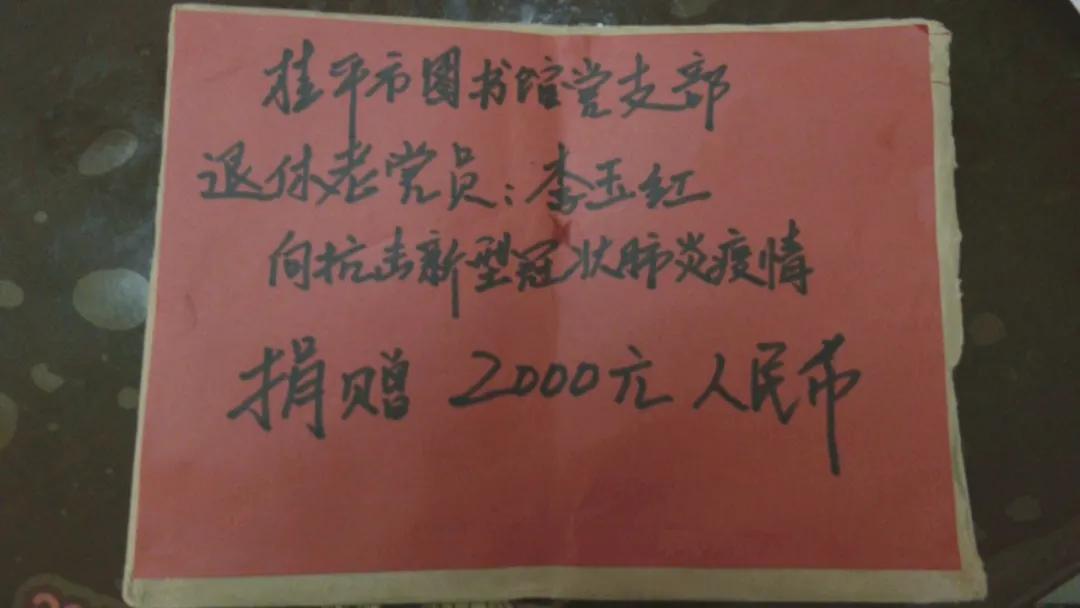 桂平市图书馆党支部
退休老党员：李玉红
向抗击新型冠状肺炎疫情
捐赠 2000元人民币